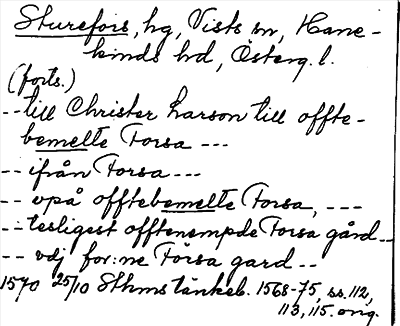 Sturefors, hg, Vists sn, Hane-
kinds hd, Österg. l.
(forts.)
-- till Christer Larson till offte-
bemelte Forsa ---
-- ifrån Forsa ---
-- vpå offtebemelte Forsa, ---
-- tesligest offtenempde Forsa gård --
-- vdj for:ne Försa gard --
1570 25/10 Sthms tänkeb. 1568-75, ss. 112,
113, 115. orig.